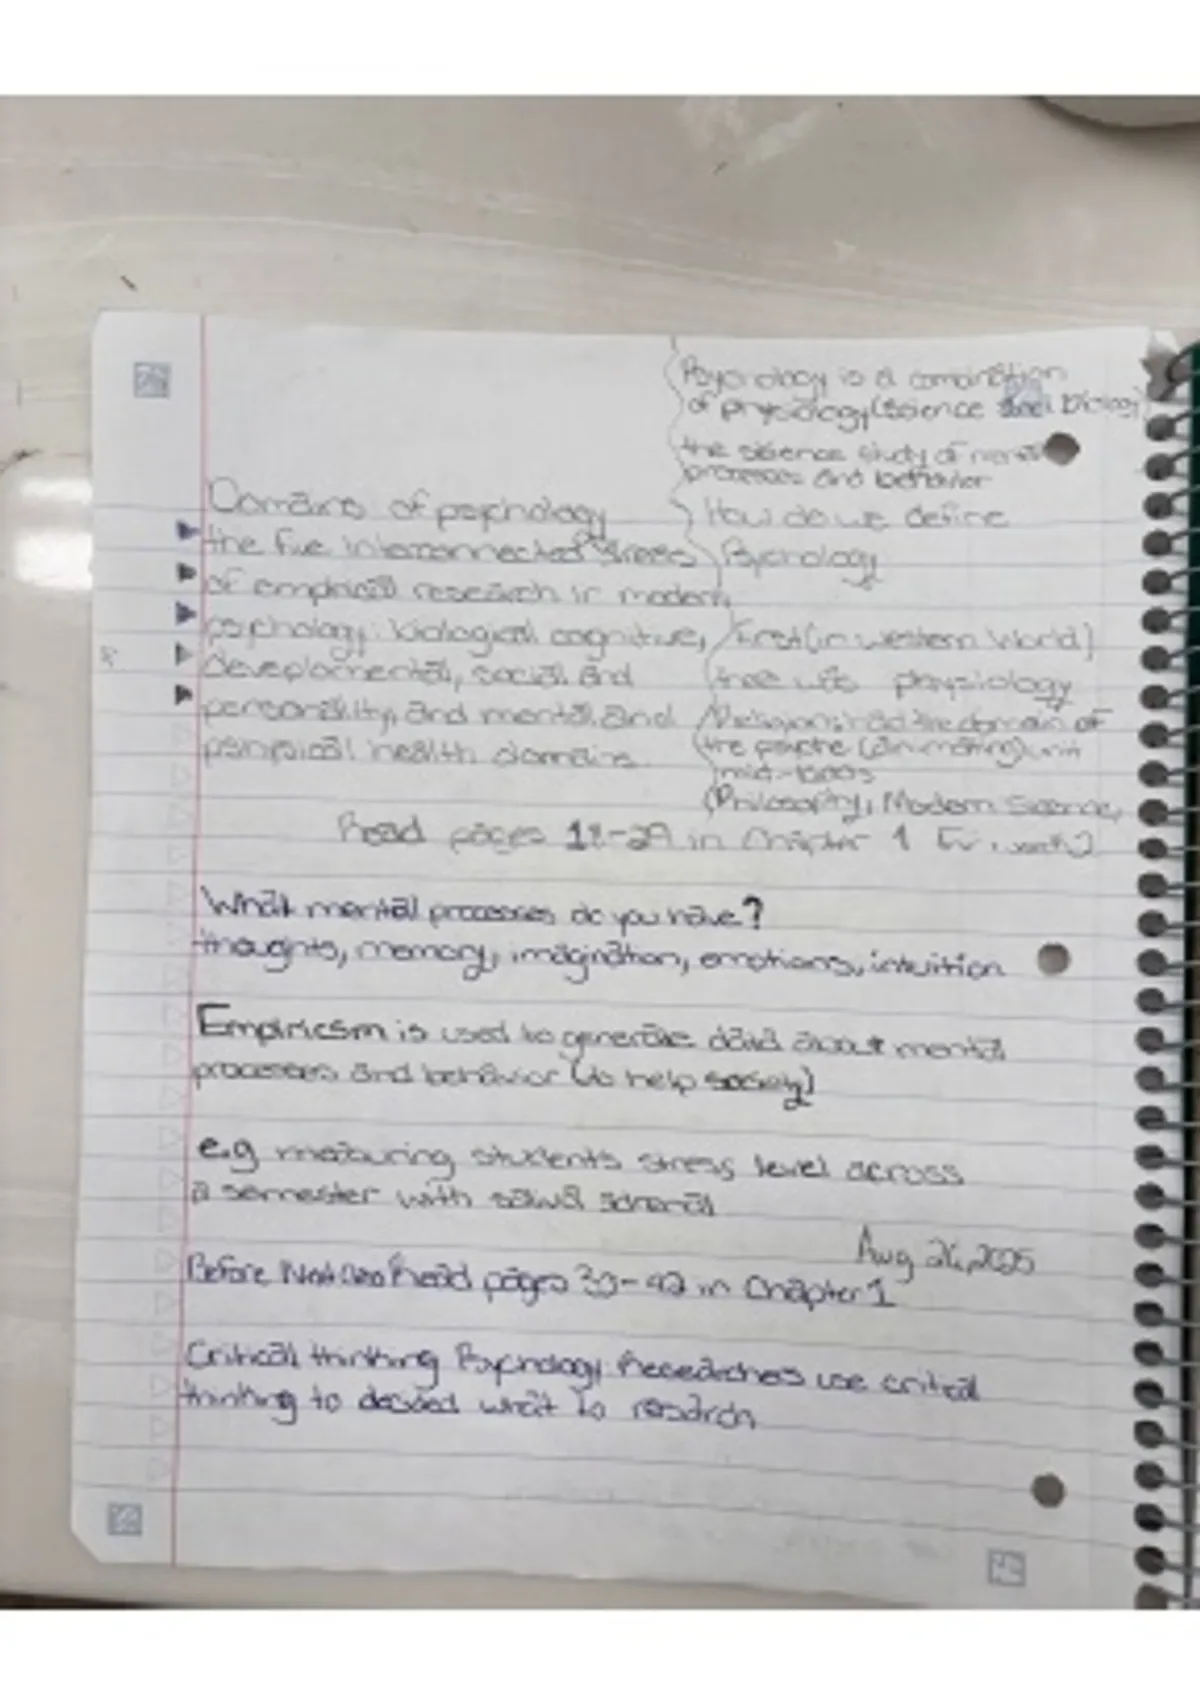 Psychology is a combination
of physiology (science and Biology)
the science study of mental
processes and behavior
How do we define
Psychology
Domains of psychology
the five interconnected areas
of empirical research in modern
psychology: biological, cognitive,
developmental, social and
personality, and mental and
physical health domains.
First (in western World)
there was physiology
Religions had the domain of
the psyche (animating) until
mid-1500s
(Philosophy, Modern Science,
Read pages 18-29 in Chapter 1
What mental processes do you have?
thoughts, memory, imagination, emotions, intuition
Empiricsm is used to generate data about mental
processes and behavior (to help society)
e.g measuring students stress level across
a semester with
Aug 26, 2025
Before Next Class Read pages 30-42 in Chapter 1
Critical thinking Psychology Researchers use critical
thinking to decided what to research